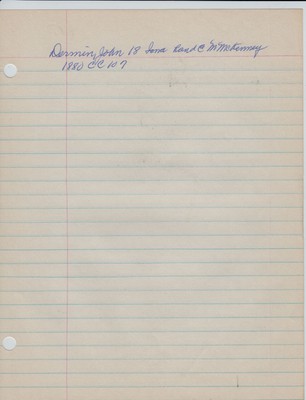 Dormin, John 18 Iowa R and C McKinney
1880 CC 107